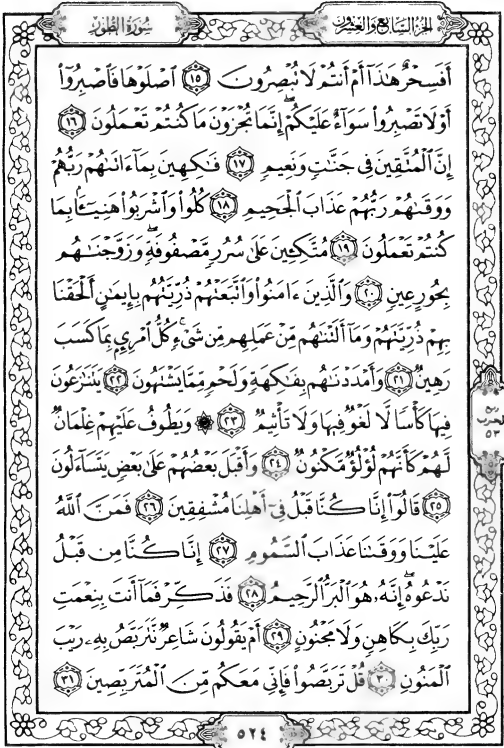 سورة الطور
الجزء السابع والعشرون
أَفَسِحْرٌ هَٰذَآ أَمْ أَنتُمْ لَا تُبْصِرُونَ ١٥ ٱصْلَوْهَا فَٱصْبِرُوٓا۟
أَوْ لَا تَصْبِرُوا۟ سَوَآءٌ عَلَيْكُمْ ۖ إِنَّمَا تُجْزَوْنَ مَا كُنتُمْ تَعْمَلُونَ ١٦
إِنَّ ٱلْمُتَّقِينَ فِى جَنَّٰتٍ وَنَعِيمٍ ١٧ فَٰكِهِينَ بِمَآ ءَاتَىٰهُمْ رَبُّهُمْ
وَوَقَىٰهُمْ رَبُّهُمْ عَذَابَ ٱلْجَحِيمِ ١٨ كُلُوا۟ وَٱشْرَبُوا۟ هَنِيٓـًٔۢا بِمَا
كُنتُمْ تَعْمَلُونَ ١٩ مُتَّكِـِٔينَ عَلَىٰ سُرُرٍ مَّصْفُوفَةٍ ۖ وَزَوَّجْنَٰهُم
بِحُورٍ عِينٍ ٢٠ وَٱلَّذِينَ ءَامَنُوا۟ وَٱتَّبَعَتْهُمْ ذُرِّيَّتُهُم بِإِيمَٰنٍ أَلْحَقْنَا
بِهِمْ ذُرِّيَّتَهُمْ وَمَآ أَلَتْنَٰهُم مِّنْ عَمَلِهِم مِّن شَىْءٍ ۚ كُلُّ ٱمْرِئٍۭ بِمَا كَسَبَ
رَهِينٌ ٢١ وَأَمْدَدْنَٰهُم بِفَٰكِهَةٍ وَلَحْمٍ مِّمَّا يَشْتَهُونَ ٢٢ يَتَنَٰزَعُونَ
فِيهَا كَأْسًا لَّا لَغْوٌ فِيهَا وَلَا تَأْثِيمٌ ٢٣ ۞ وَيَطُوفُ عَلَيْهِمْ غِلْمَانٌ
لَّهُمْ كَأَنَّهُمْ لُؤْلُؤٌ مَّكْنُونٌ ٢٤ وَأَقْبَلَ بَعْضُهُمْ عَلَىٰ بَعْضٍ يَتَسَآءَلُونَ
٢٥ قَالُوٓا۟ إِنَّا كُنَّا قَبْلُ فِىٓ أَهْلِنَا مُشْفِقِينَ ٢٦ فَمَنَّ ٱللَّهُ
عَلَيْنَا وَوَقَىٰنَا عَذَابَ ٱلسَّمُومِ ٢٧ إِنَّا كُنَّا مِن قَبْلُ
نَدْعُوهُ ۖ إِنَّهُۥ هُوَ ٱلْبَرُّ ٱلرَّحِيمُ ٢٨ فَذَكِّرْ فَمَآ أَنتَ بِنِعْمَتِ
رَبِّكَ بِكَاهِنٍ وَلَا مَجْنُونٍ ٢٩ أَمْ يَقُولُونَ شَاعِرٌ نَّتَرَبَّصُ بِهِۦ رَيْبَ
ٱلْمَنُونِ ٣٠ قُلْ تَرَبَّصُوا۟ فَإِنِّى مَعَكُم مِّنَ ٱلْمُتَرَبِّصِينَ ٣١
الحزب
٥٣
٥٢٤